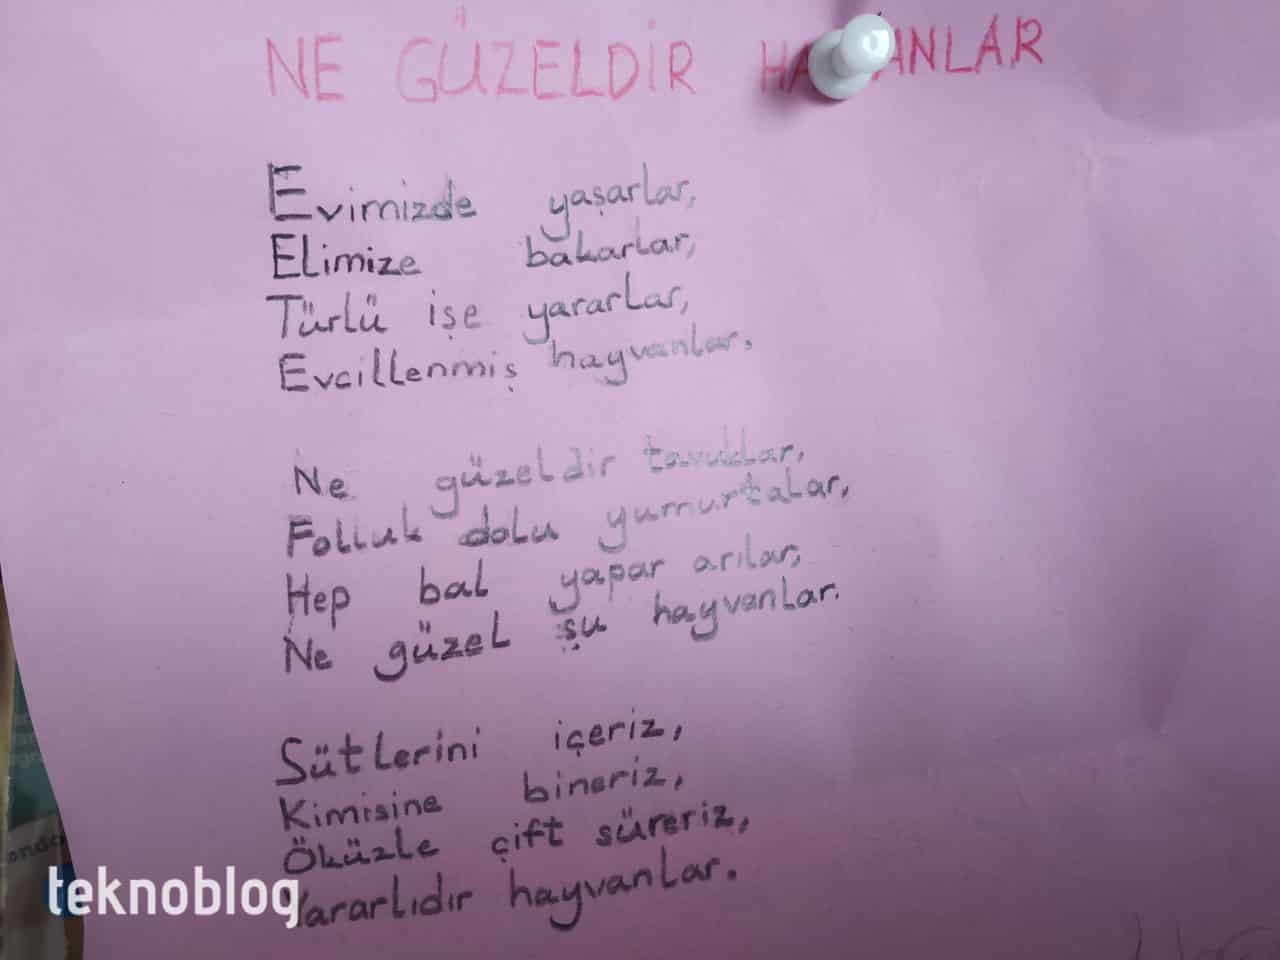 NE GÜZELDİR HAYVANLAR
Evimizde yaşarlar,
Elimize bakarlar,
Türlü işe yararlar,
Evcillenmiş hayvanlar.
Ne güzeldir tavuklar,
Folluk dolu yumurtalar,
Hep bal yapar arılar,
Ne güzel şu hayvanlar.
Sütlerini içeriz,
Kimisine bineriz,
Öküzle çift süreriz,
Yararlıdır hayvanlar.
teknoblog